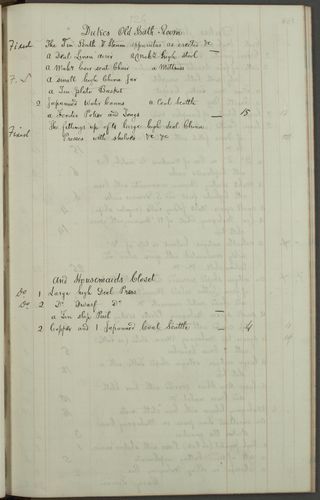 Dukes Old Bath Room
Fixed The Tin Bath & Steam apparatus as erected &c
a Deal Linen airer a high stool
a Water Chair a Mattress
F. S a small high China Jar
a Tin plate Basket
2 Japanned Water Canns a Coal Scuttle
a Fender Poker and Tongs — 15
Fixed The fittings up of 2 large high Deal China
Presses with shelves &c &c
And Housemaids Closet
Do 1 Large high Deal Press
Do 2 Do Dwarf Do
a Tin slop Pail
2 Copper and 1 Japanned Coal Scuttle — 4